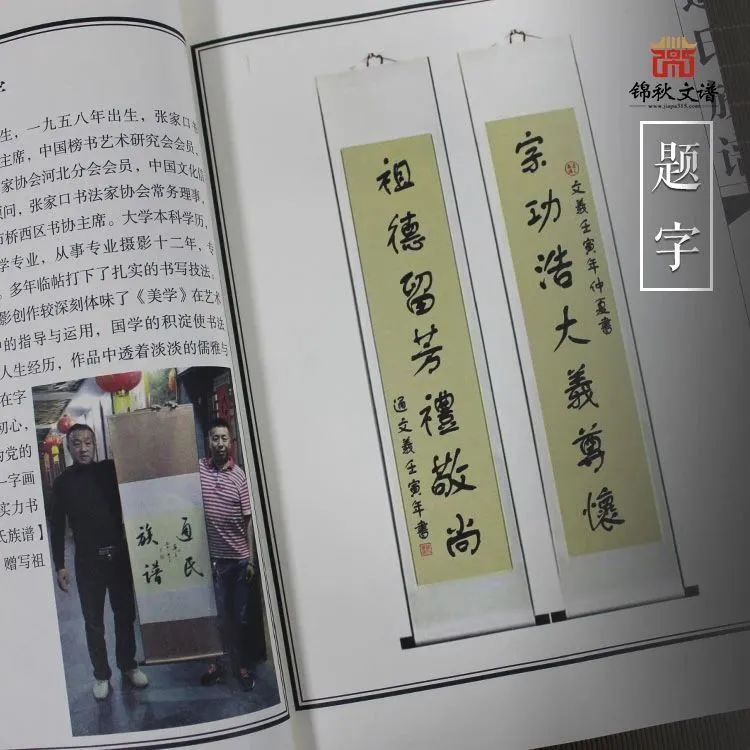 生，一九五八年出生，张家口书
主席，中国榜书艺术研究会会员，
家协会河北分会会员，中国文化信
顾问，张家口书法家协会常务理事，
市桥西区书协主席。大学本科学历，
学专业，从事专业摄影十二年，专
。多年临帖打下了扎实的书写技法。
影创作较深刻体味了《美学》在艺术
中的指导与运用，国学的积淀使书法
人生经历，作品中透着淡淡的儒雅与
在字
初心，
为党的
一字画
实力书
氏族谱】
赠写祖
通氏
族譜
宗功浩大義尊懷
文義壬寅年仲夏書
祖德留芳禮敬尚
通文義壬寅年書
锦秋文谱
www.jiapu315.com
题字
通氏族谱